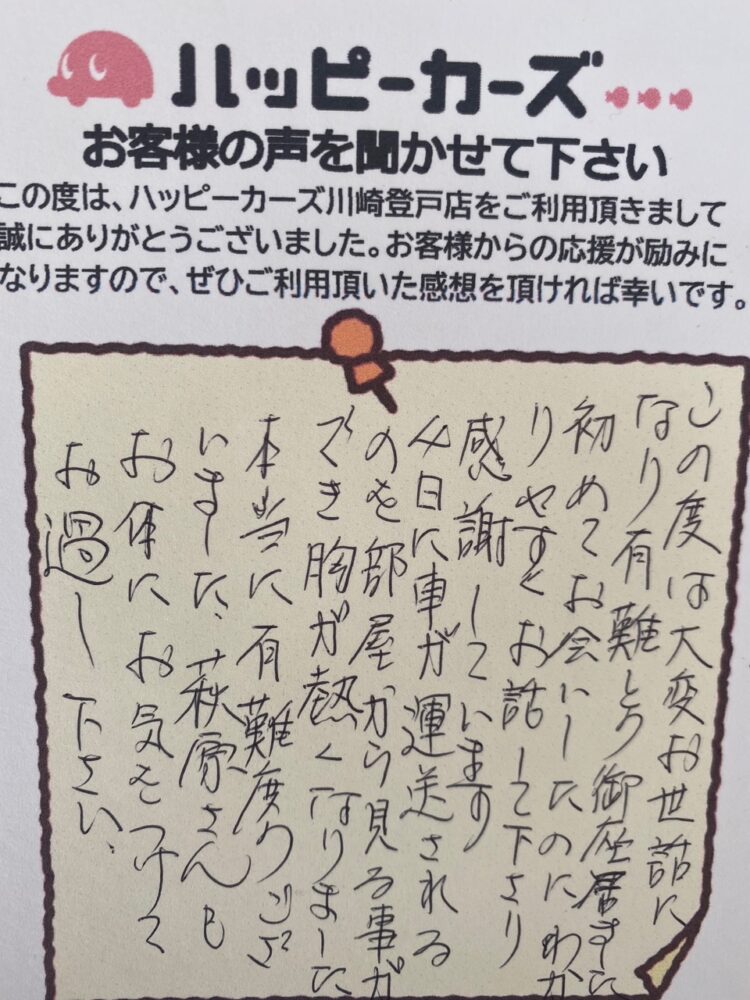 ハッピーカーズ
お客様の声を聞かせて下さい
この度は、ハッピーカーズ川崎登戸店をご利用頂きまして
誠にありがとうございました。お客様からの応援が励みに
なりますので、ぜひご利用頂いた感想を頂ければ幸いです。
この度は大変お世話に
なり有難とう御座居ました
初めてお会いしたのにわか
りやすくお話して下さり
感謝しています
4日に車が運送される
のを部屋から見る事が
でき胸が熱くなりました
本当に有難度うござ
いました、萩原さんも
お体にお気をつけて
お過し下さい、